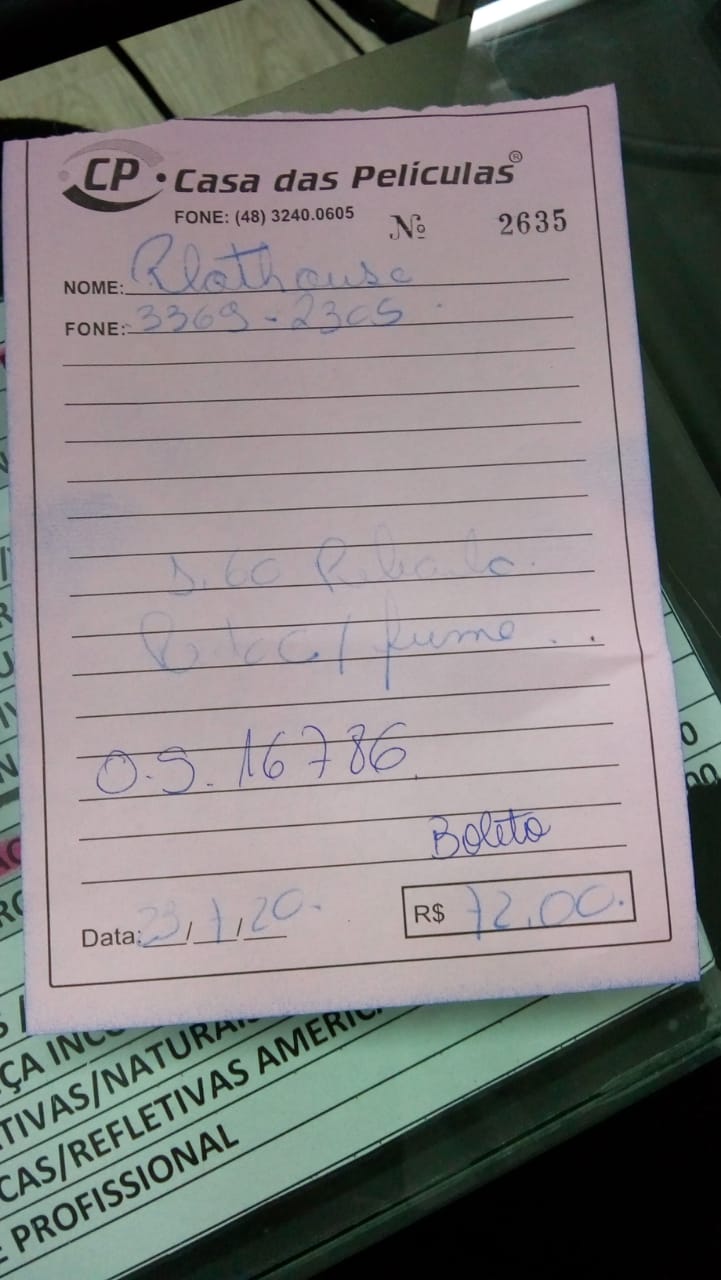 CP • Casa das Películas®
FONE: (48) 3240.0605 Nº 2635
NOME: Plothouse
FONE: 3369-2305
/ fume...
O.S. 16786
Boleto
Data: 23/7/20. R$ 72,00.
ÇA INCO
TIVAS/NATURAIS
CAS/REFLETIVAS AMERIC
PROFISSIONAL